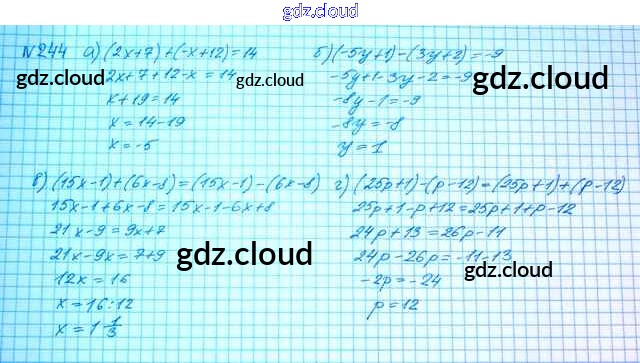 gdz.cloud
№244 а) (2x+7)+(-x+12)=14
2x+7+12-x=14
x+19=14
x=14-19
x=-5
б) (-5y+1)-(3y+2)=-9
-5y+1-3y-2=-9
-8y-1=-9
-8y=-8
y=1
в) (15x-1)+(6x-8)=(15x-1)-(6x-8)
15x-1+6x-8=15x-1-6x+8
21x-9=9x+7
21x-9x=7+9
12x=16
x=16:12
x=1 1/3
г) (25p+1)-(p-12)=(25p+1)+(p-12)
25p+1-p+12=25p+1+p-12
24p+13=26p-11
24p-26p=-11-13
-2p=-24
p=12
gdz.cloud
gdz.cloud
gdz.cloud
gdz.cloud
gdz.cloud